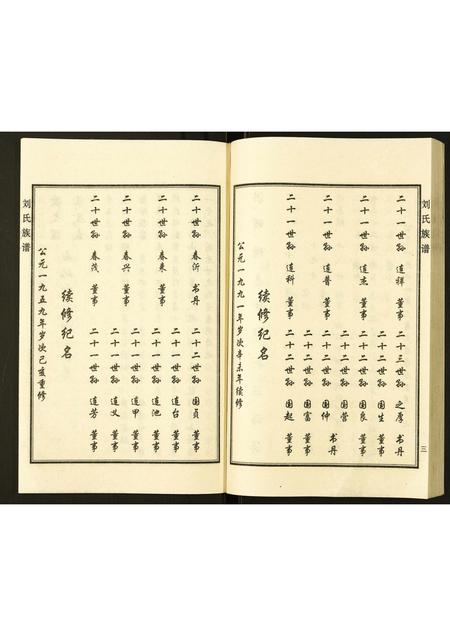 刘氏族谱
三
二十一世孙 道祥 董事 二十三世孙 之厚 书丹
二十二世孙 国生 董事
二十一世孙 道杰 董事 二十二世孙 国良 董事
二十二世孙 国营
二十一世孙 道普 董事 二十二世孙 国仲 书丹
二十二世孙 国富 董事
二十一世孙 道科 董事 二十二世孙 国起 董事
续修纪名
公元一九九一年岁次辛未年续修
二十世孙 春沂 书丹 二十二世孙 国贞 董事
二十一世孙 道台 董事
二十世孙 春来 董事 二十一世孙 道池 董事
二十一世孙 道甲 董事
二十世孙 春兴 董事 二十一世孙 道义 董事
二十世孙 春茂 董事 二十一世孙 道芳 董事
续修纪名
公元一九五九年岁次己亥重修
刘氏族谱